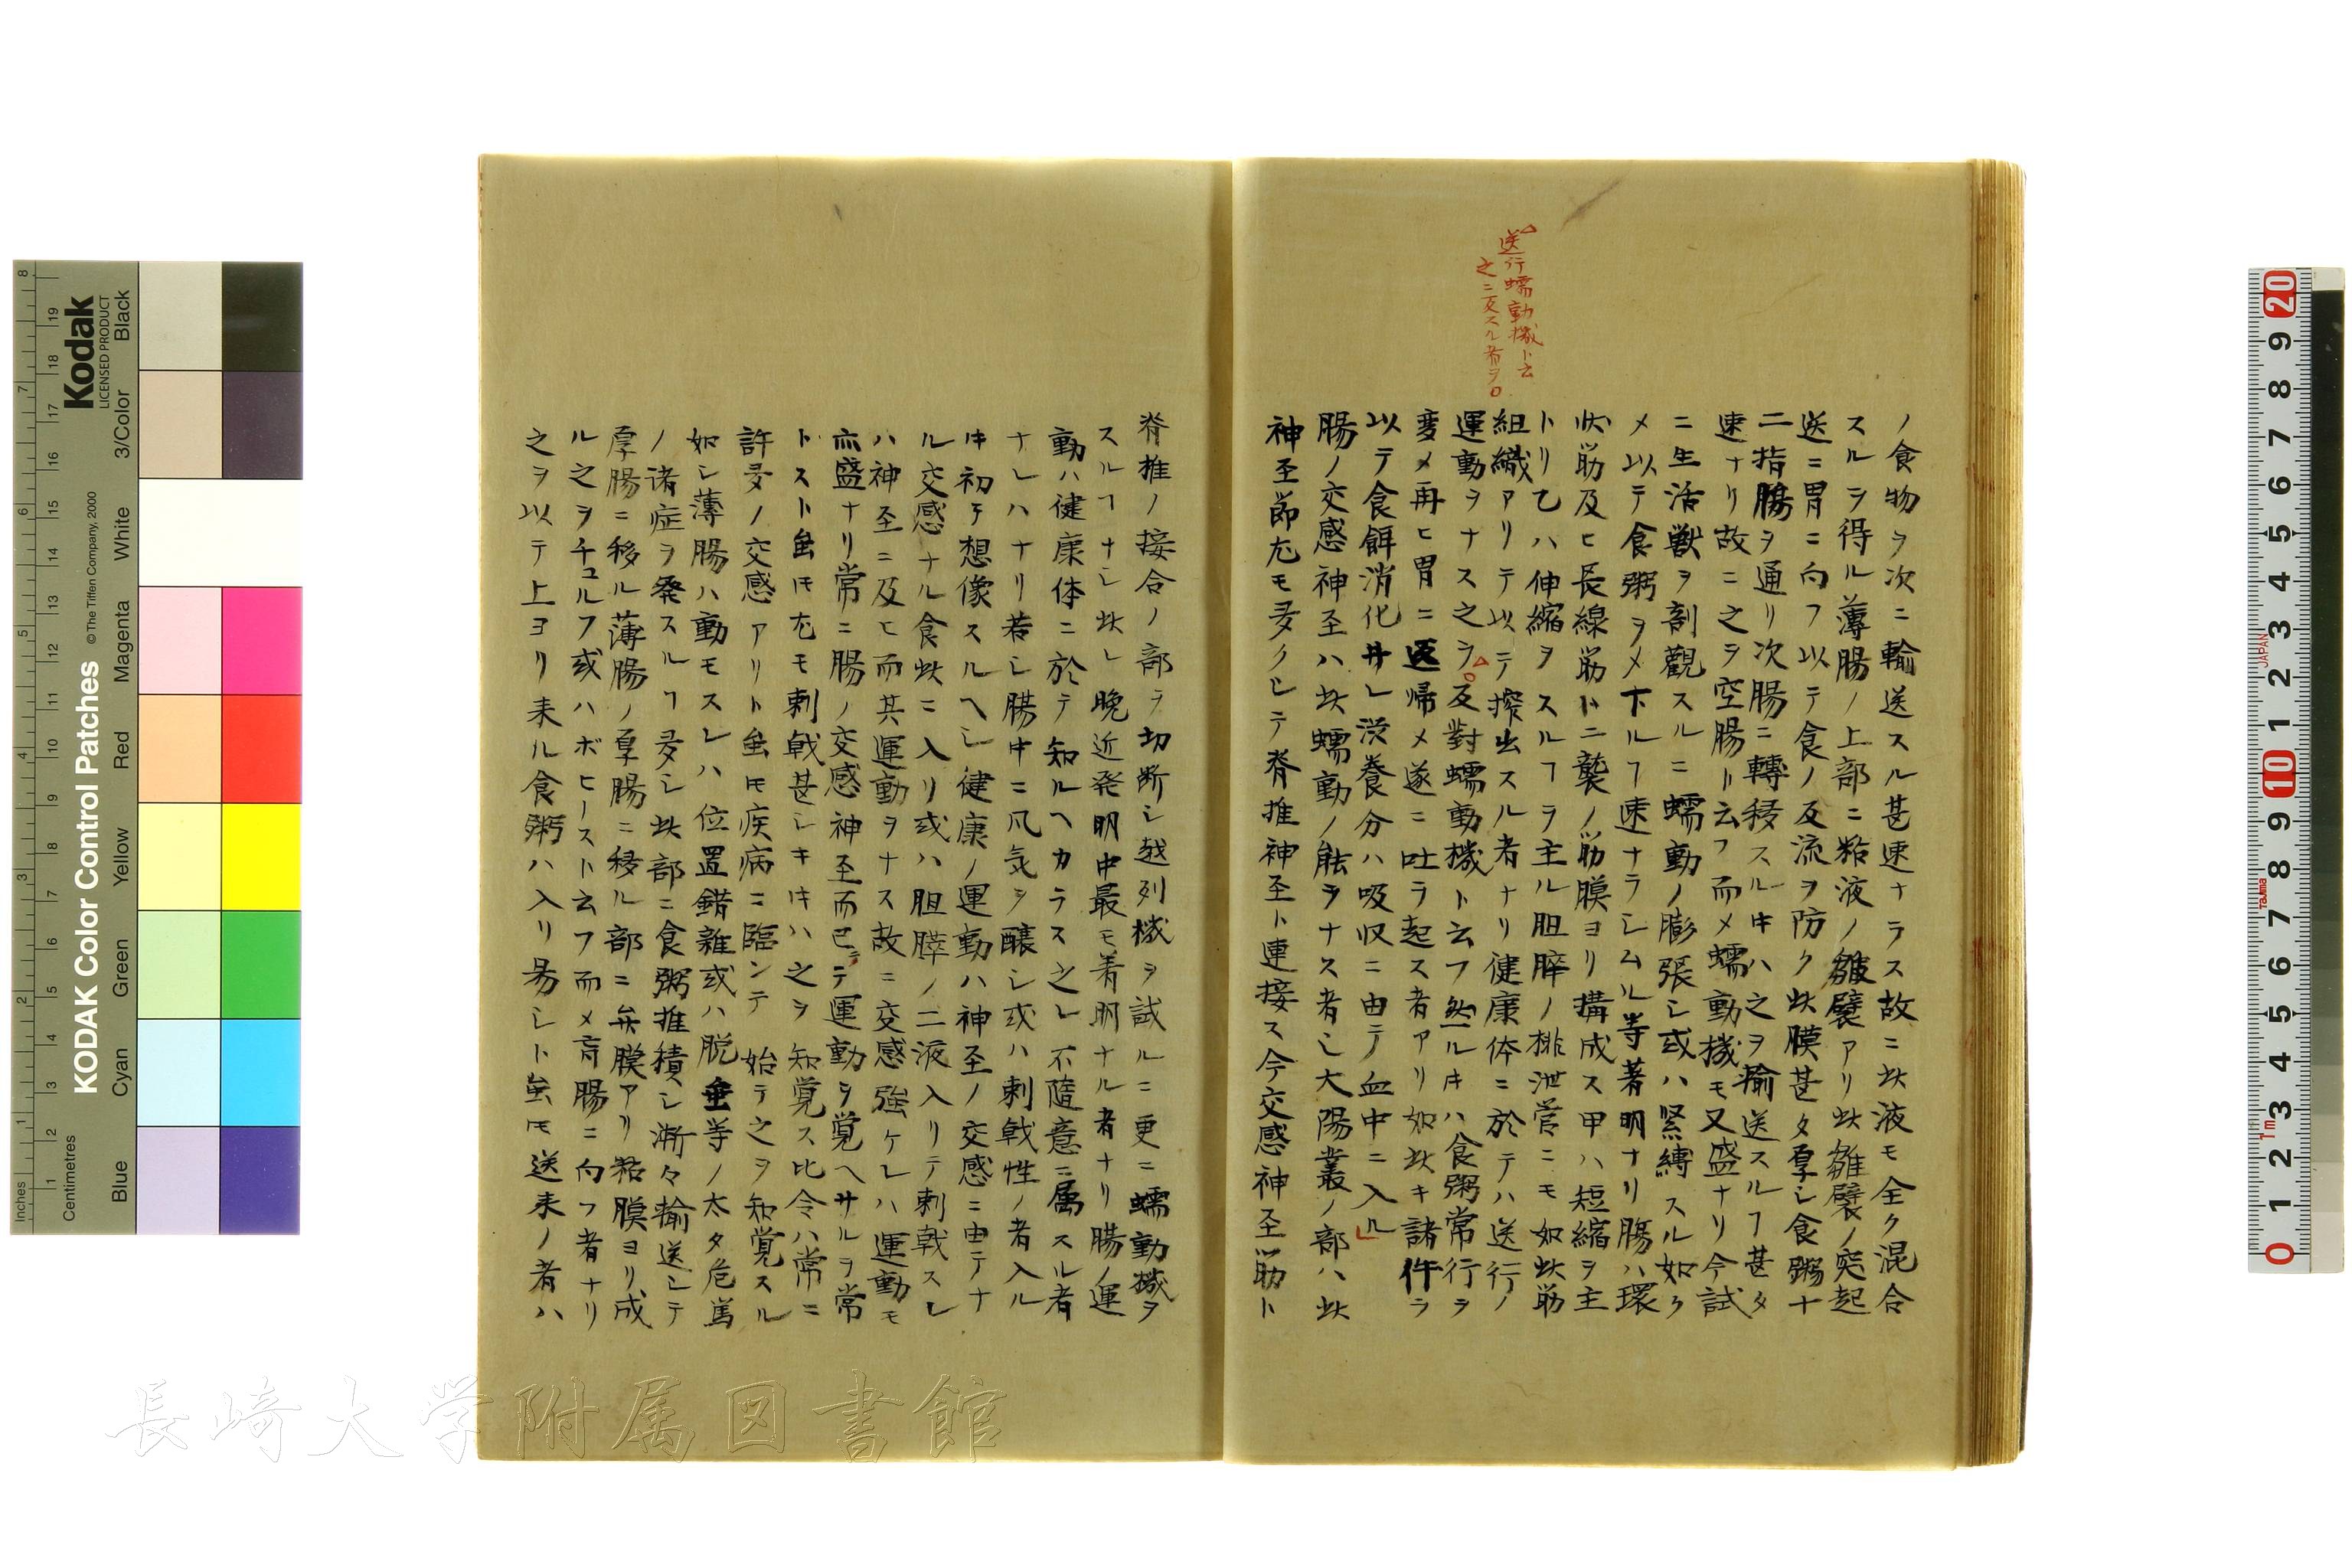 送行蠕動機ト云
之ニ交スル者ヲ
ノ食物ヲ次ニ輸送スル甚速ナラス故ニ此液モ全ク混合
スルヲ得ル薄腸ノ上部ニ粘液ノ皺襞アリ此皺襞ノ突起
送ニ胃ニ向フ以テ食ノ反流ヲ防ク此膜甚タ厚シ食粥十
二指腸ヲ通リ次腸ニ轉移スルキハ之ヲ輸送スルヿ甚タ
速ナリ故ニ之ヲ空腸ト云フ而メ蠕動機モ又盛ナリ今試
ニ生活獣ヲ剖觀スルニ蠕動ノ膨張シ或ハ緊縛スル如ク
メ以テ食粥ヲメ下ルヿ速ナラシムル等著明ナリ腸ハ環
状筋及ヒ長線筋ト二襲ノ筋膜ヨリ搆成ス甲ハ短縮ヲ主
トリ乙ハ伸縮ヲスルヿヲ主ル胆膵ノ排泄管ニモ如此筋
組織アリテ以テ搾出スル者ナリ健康体ニ於テハ送行ノ
運動ヲナス之ヲ反對蠕動機ト云フ然ルキハ食粥常行ヲ
変メ再ヒ胃ニ返帰メ遂ニ吐ヲ起ス者アリ如此キ諸件ヲ
以テ食餌消化サレ滋養分ハ吸収ニ由テ血中ニ入ル
腸ノ交感神圣ハ此蠕動ノ能ヲナス者シ大陽叢ノ部ハ此
神圣節尤モ多クシテ脊推神圣ト連接ス今交感神圣筋ト
脊推ノ接合ノ部ヲ切断シ越列機ヲ試ルニ更ニ蠕動機ヲ
スルヿナシ此レ晩近発明中最モ著明ナル者ナリ腸ノ運
動ハ健康体ニ於テ知ルヘカラス之レ不隨意ニ属スル者
ナレハナリ若シ腸中ニ凡気ヲ醸シ或ハ刺戟性ノ者入ル
キ初テ想像スルヘシ健康ノ運動ハ神圣ノ交感ニ由テナ
ル交感ナル食此ニ入リ或ハ胆膵ノ二液入リテ刺戟スレ
ハ神圣ニ及ヒ而其運動ヲナス故ニ交感強ケレハ運動モ
亦盛ナリ常ニ腸ノ交感神圣而已ニテ運動ヲ覚ヘサルヲ常
トスト虽モ尤モ刺戟甚シキキハ之ヲ知覚ス比令ハ常ニ
許多ノ交感アリト虽モ疾病ニ臨ンテ始テ之ヲ知覚スル
如シ薄腸ハ動モスレハ位置錯雜或ハ脱垂等ノ太タ危篤
ノ诸症ヲ発スルヿ多シ此部ニ食粥推積シ漸々輸送シテ
厚腸ニ移ル薄腸ノ厚腸ニ移ル部ニ弁膜アリ粘膜ヨリ成
ル之ヲチユルフ或ハボヒーストト云フ而メ盲腸ニ向フ者ナリ
之ヲ以テ上ヨリ来ル食粥ハ入リ易シト虽モ送来ノ者ハ
長崎大学附属図書館